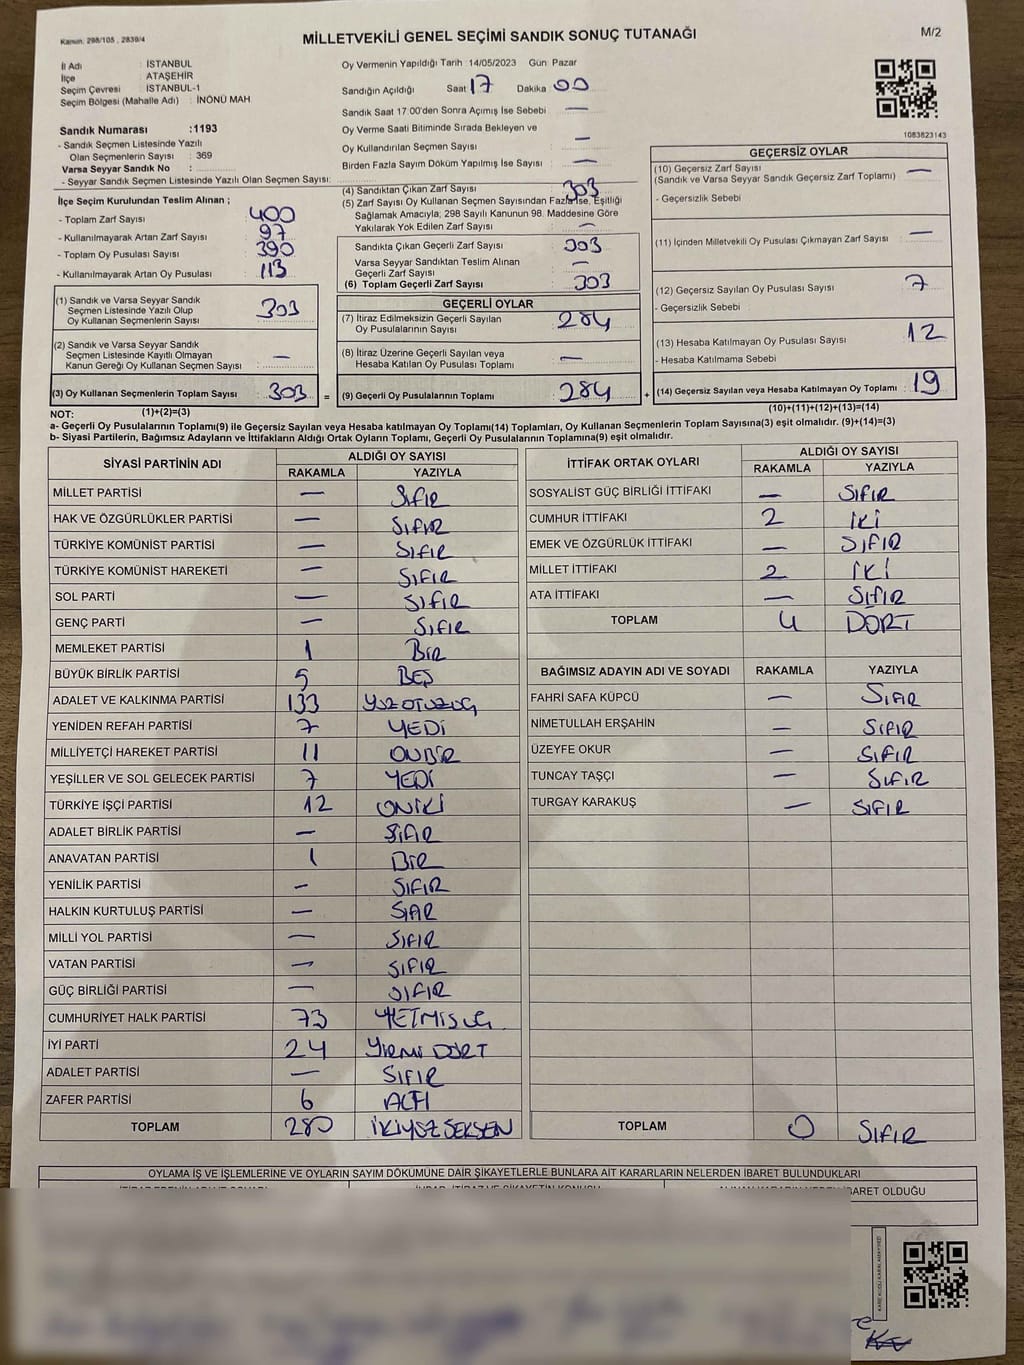 Kanun, 298/105 , 2839/4
MİLLETVEKİLİ GENEL SEÇİMİ SANDIK SONUÇ TUTANAĞI
M/2
İl Adı : İSTANBUL
İlçe : ATAŞEHİR
Seçim Çevresi : İSTANBUL-1
Seçim Bölgesi (Mahalle Adı) : İNÖNÜ MAH
Oy Vermenin Yapıldığı Tarih :14/05/2023 Gün: Pazar
Sandığın Açıldığı Saat 17 Dakika 00
Sandık Saat 17:00'den Sonra Açımış İse Sebebi —
Oy Verme Saati Bitiminde Sırada Bekleyen ve
Oy Kullandırılan Seçmen Sayısı —
Birden Fazla Sayım Döküm Yapılmış İse Sayısı —
1083823143
Sandık Numarası :1193
- Sandık Seçmen Listesinde Yazılı
Olan Seçmenlerin Sayısı : 369
Varsa Seyyar Sandık No :
- Seyyar Sandık Seçmen Listesinde Yazılı Olan Seçmen Sayısı:
İlçe Seçim Kurulundan Teslim Alınan ;
- Toplam Zarf Sayısı 400
- Kullanılmayarak Artan Zarf Sayısı 97
- Toplam Oy Pusulası Sayısı 390
- Kullanılmayarak Artan Oy Pusulası 113
(1) Sandık ve Varsa Seyyar Sandık
Seçmen Listesinde Yazılı Olup
Oy Kullanan Seçmenlerin Sayısı 303
(2) Sandık ve Varsa Seyyar Sandık
Seçmen Listesinde Kayıtlı Olmayan
Kanun Gereği Oy Kullanan Seçmen Sayısı —
(3) Oy Kullanan Seçmenlerin Toplam Sayısı 303 =
(4) Sandıktan Çıkan Zarf Sayısı 303
(5) Zarf Sayısı Oy Kullanan Seçmen Sayısından Fazla İse, Eşitliği
Sağlamak Amacıyla; 298 Sayılı Kanunun 98. Maddesine Göre
Yakılarak Yok Edilen Zarf Sayısı —
Sandıkta Çıkan Geçerli Zarf Sayısı 303
Varsa Seyyar Sandıktan Teslim Alınan
Geçerli Zarf Sayısı —
(6) Toplam Geçerli Zarf Sayısı 303
GEÇERLİ OYLAR
(7) İtiraz Edilmeksizin Geçerli Sayılan
Oy Pusulalarının Sayısı 284
(8) İtiraz Üzerine Geçerli Sayılan veya
Hesaba Katılan Oy Pusulası Toplamı —
(9) Geçerli Oy Pusulalarının Toplamı 284 +
GEÇERSİZ OYLAR
(10) Geçersiz Zarf Sayısı
(Sandık ve Varsa Seyyar Sandık Geçersiz Zarf Toplamı) —
- Geçersizlik Sebebi
(11) İçinden Milletvekili Oy Pusulası Çıkmayan Zarf Sayısı —
(12) Geçersiz Sayılan Oy Pusulası Sayısı 7
- Geçersizlik Sebebi
(13) Hesaba Katılmayan Oy Pusulası Sayısı 12
- Hesaba Katılmama Sebebi
(14) Geçersiz Sayılan veya Hesaba Katılmayan Oy Toplamı 19
NOT: (1)+(2)=(3) (10)+(11)+(12)+(13)=(14)
a- Geçerli Oy Pusulalarının Toplamı(9) ile Geçersiz Sayılan veya Hesaba katılmayan Oy Toplamı(14) Toplamları, Oy Kullanan Seçmenlerin Toplam Sayısına(3) eşit olmalıdır. (9)+(14)=(3)
b- Siyasi Partilerin, Bağımsız Adayların ve İttifakların Aldığı Ortak Oyların Toplamı, Geçerli Oy Pusulalarının Toplamına(9) eşit olmalıdır.
SİYASİ PARTİNİN ADI ALDIĞI OY SAYISI
RAKAMLA YAZIYLA
MİLLET PARTİSİ — SIFIR
HAK VE ÖZGÜRLÜKLER PARTİSİ — SIFIR
TÜRKİYE KOMÜNİST PARTİSİ — SIFIR
TÜRKİYE KOMÜNİST HAREKETİ — SIFIR
SOL PARTİ — SIFIR
GENÇ PARTİ — SIFIR
MEMLEKET PARTİSİ 1 BİR
BÜYÜK BİRLİK PARTİSİ 5 BEŞ
ADALET VE KALKINMA PARTİSİ 133 YÜZOTUZÜÇ
YENİDEN REFAH PARTİSİ 7 YEDİ
MİLLİYETÇİ HAREKET PARTİSİ 11 ONBİR
YEŞİLLER VE SOL GELECEK PARTİSİ 7 YEDİ
TÜRKİYE İŞÇİ PARTİSİ 12 ONİKİ
ADALET BİRLİK PARTİSİ — SIFIR
ANAVATAN PARTİSİ 1 BİR
YENİLİK PARTİSİ — SIFIR
HALKIN KURTULUŞ PARTİSİ — SIFIR
MİLLİ YOL PARTİSİ — SIFIR
VATAN PARTİSİ — SIFIR
GÜÇ BİRLİĞİ PARTİSİ — SIFIR
CUMHURİYET HALK PARTİSİ 73 YETMİŞ ÜÇ
İYİ PARTİ 24 YİRMİ DÖRT
ADALET PARTİSİ — SIFIR
ZAFER PARTİSİ 6 ALTI
TOPLAM 280 İKİYÜZ SEKSEN
İTTİFAK ORTAK OYLARI ALDIĞI OY SAYISI
RAKAMLA YAZIYLA
SOSYALİST GÜÇ BİRLİĞİ İTTİFAKI — SIFIR
CUMHUR İTTİFAKI 2 İKİ
EMEK VE ÖZGÜRLÜK İTTİFAKI — SIFIR
MİLLET İTTİFAKI 2 İKİ
ATA İTTİFAKI — SIFIR
TOPLAM 4 DÖRT
BAĞIMSIZ ADAYIN ADI VE SOYADI RAKAMLA YAZIYLA
FAHRİ SAFA KÜPCÜ — SIFIR
NİMETULLAH ERŞAHİN — SIFIR
ÜZEYFE OKUR — SIFIR
TUNCAY TAŞÇI — SIFIR
TURGAY KARAKUŞ — SIFIR
TOPLAM 0 SIFIR
OYLAMA İŞ VE İŞLEMLERİNE VE OYLARIN SAYIM DÖKÜMÜNE DAİR ŞİKAYETLERLE BUNLARA AİT KARARLARIN NELERDEN İBARET BULUNDUKLARI
İBARET OLDUĞU